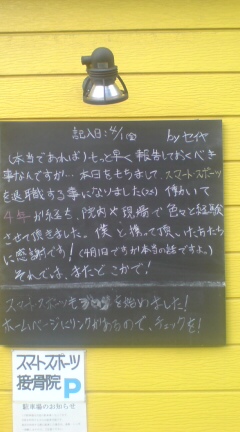 記入日:4/1(金)
by セイヤ
(本当であれば)もっと早く報告しておくべき
事なんですが… 本日をもちまして、スマートスポーツ
を退職する事になりました(××) 働いて
4年が経ち、院内や現場で色々と経験
させて頂きました。僕と携って頂いた方たち
に感謝です！(4月1日ですが本当の話ですよ。)
それでは、またどこかで！
スマートスポーツも を始めました！
ホームページにリンクがあるので、チェックを！
スマートスポーツ
接骨院 P
駐車場のお知らせ